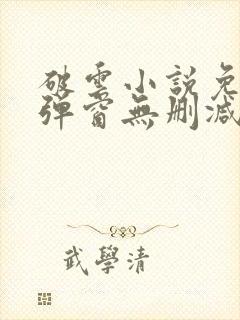 破雲小説免
彈窗無刪減
武學清